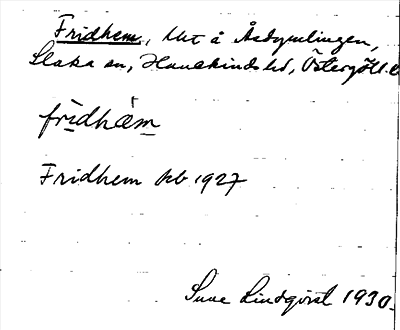 Fridhem, lht å Åsdymlingen,
Slaka sn, Hanekinds hd, Östergötl. l
fridhäm
Fridhem kb 1927
Sune Lindqvist 1930.